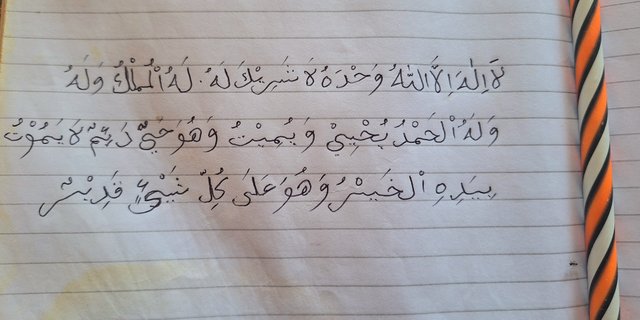 لَا اِلٰهَ اِلَّا اللّٰهُ وَحْدَهُ لَا شَرِيْكَ لَهُ. لَهُ الْمُلْكُ وَلَهُ
وَلَهُ الْحَمْدُ يُحْيِيْ وَيُمِيْتُ وَهُوَ حَيٌّ دَيِٕمٌ لَا يَمُوْتُ
بِيَدِهِ الْخَيْرُ وَهُوَ عَلَى كُلِّ شَيْئٍ قَدِيْرٌ